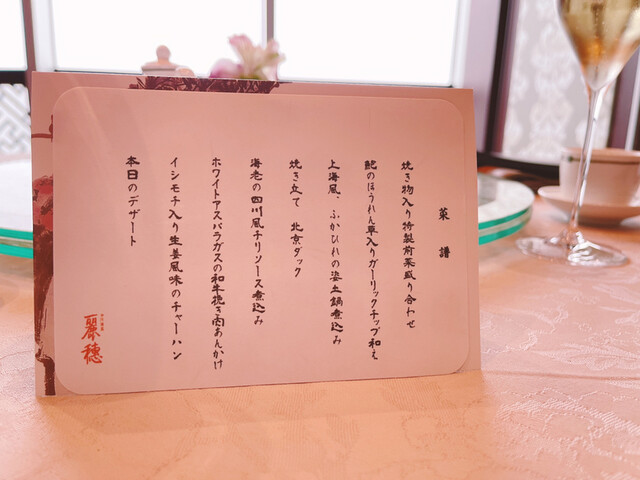 菜譜
焼き物入り特製前菜盛り合わせ
鮑のほうれん草入りガーリックチップ和え
上海風、ふかひれの姿土鍋煮込み
焼き立て 北京ダック
海老の四川風チリソース煮込み
ホワイトアスパラガスの和牛挽き肉あんかけ
イシモチ入り生姜風味のチャーハン
本日のデザート
麗穂